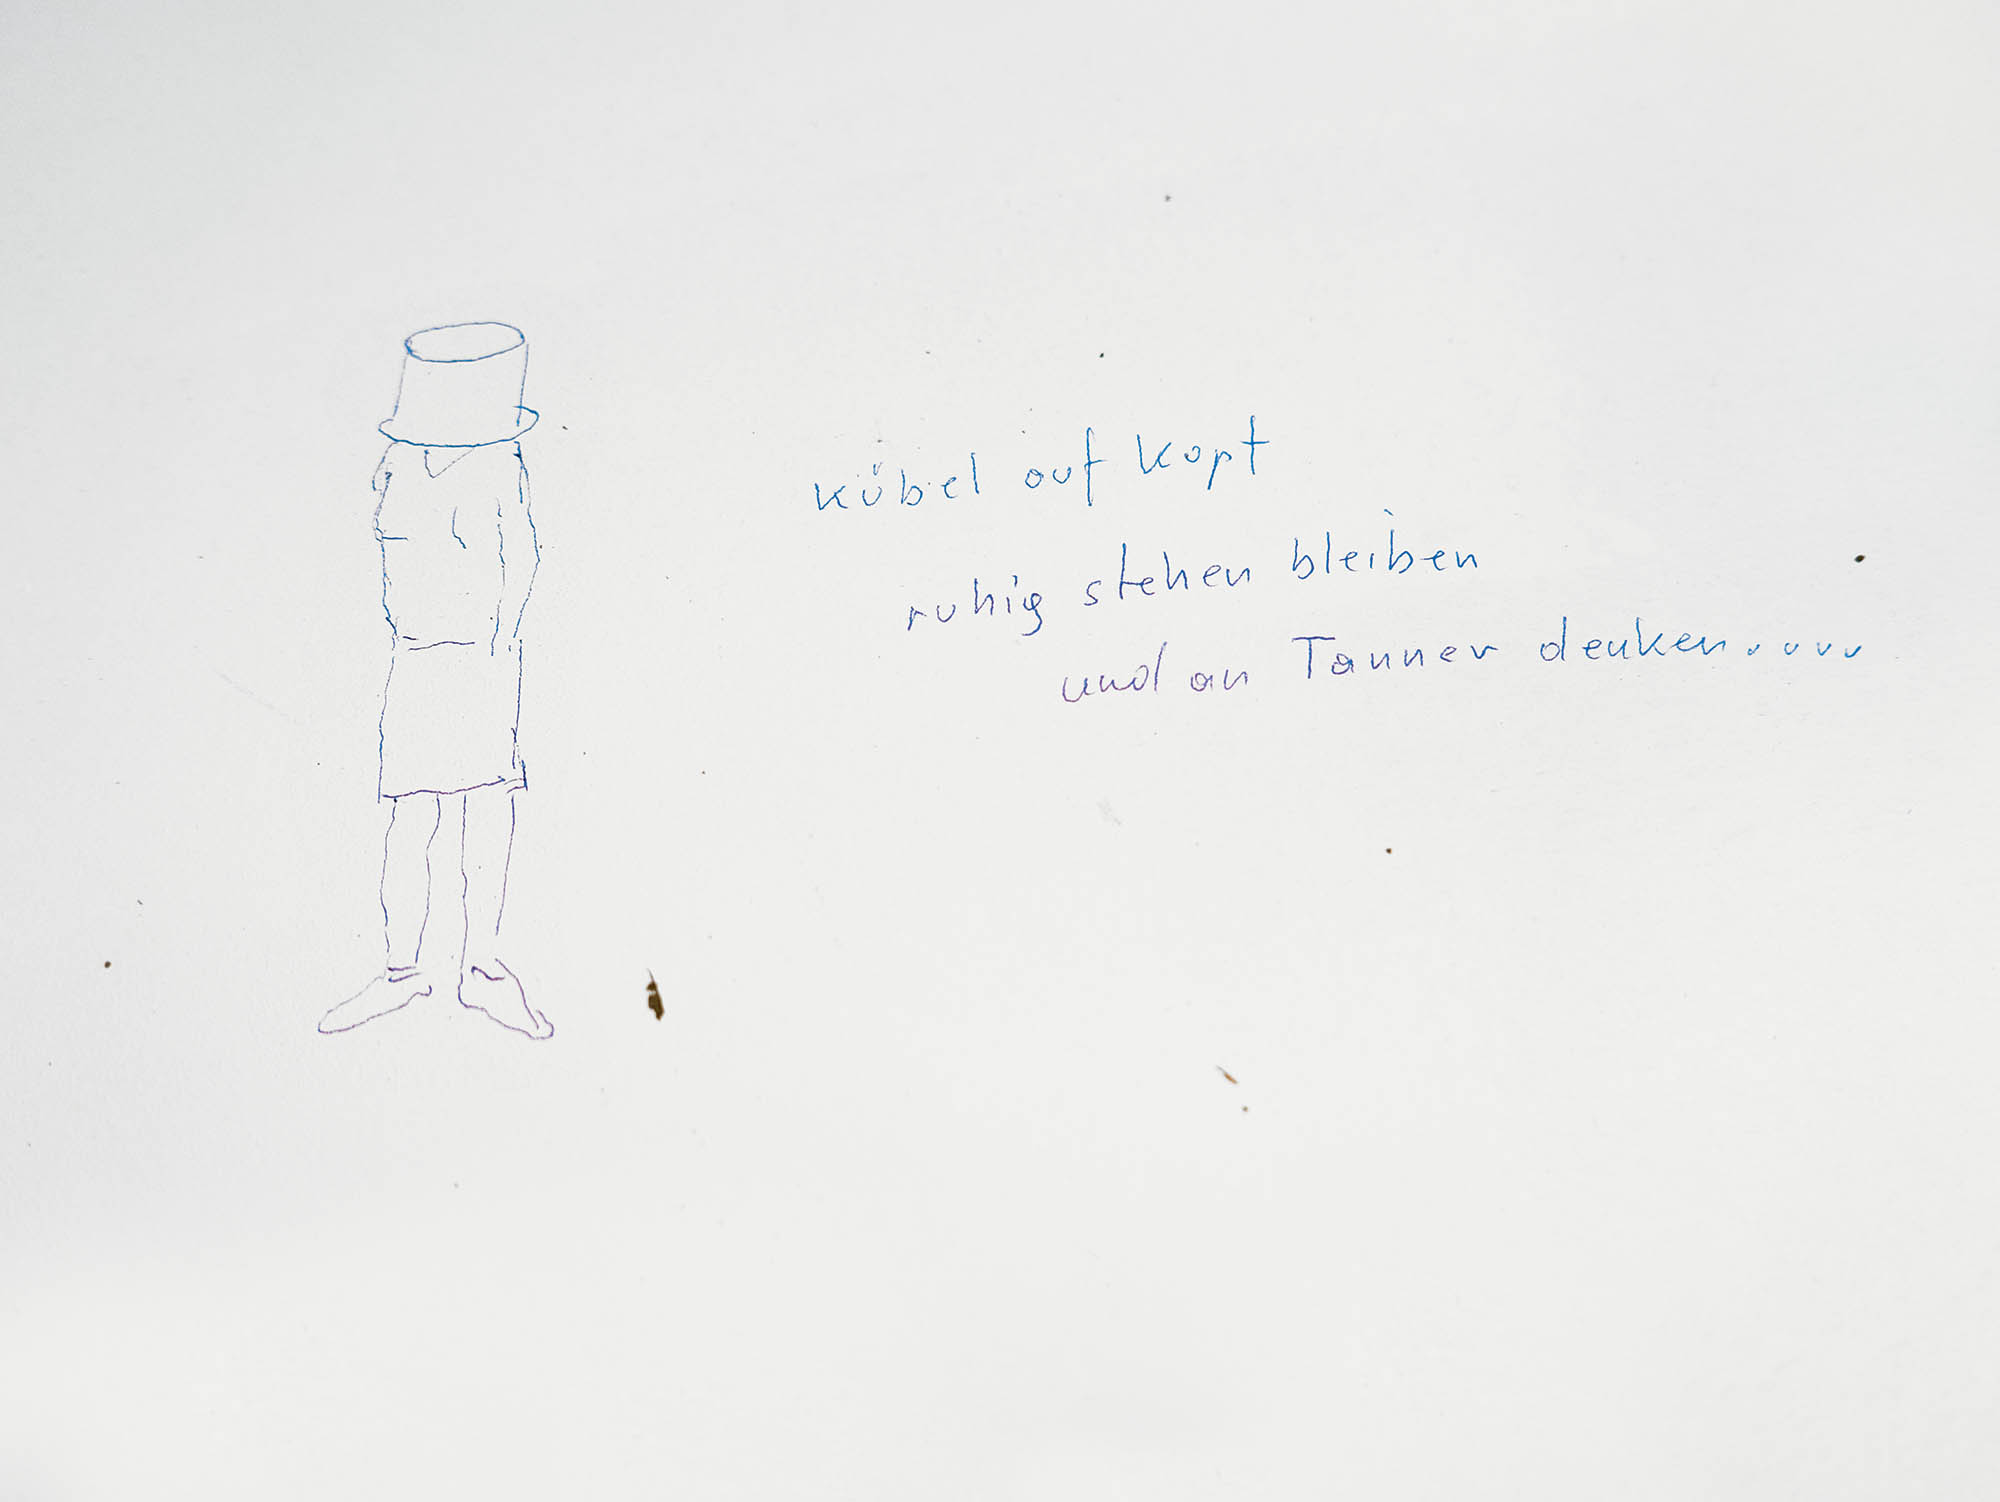 kübel auf kopf
ruhig stehen bleiben
und an Tanner denken.....